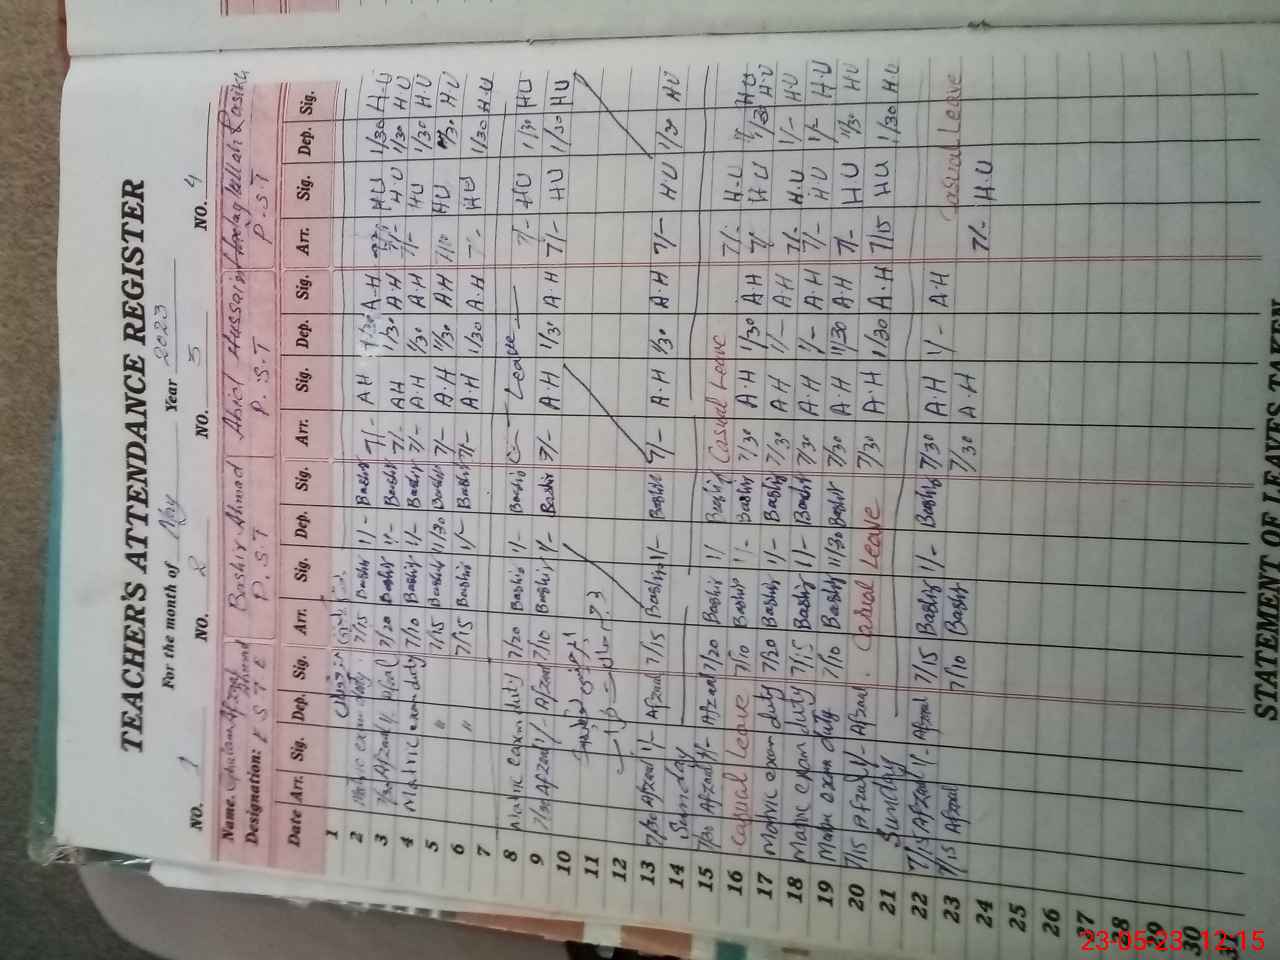 TEACHER'S ATTENDANCE REGISTER
For the month of May Year 2023
NO. 1 NO. 2 NO. 3 NO. 4
Name. Bashir Ahmad Abid Hussain
Designation: E S T E P. S T P. S. T P. S T
Date Arr. Sig. Dep. Sig. Arr. Sig. Dep. Sig. Arr. Sig. Dep. Sig. Arr. Sig. Dep. Sig.
1
2 Matric exam duty 7/15 Bashir 1/- Bashir 7/- A H 1/30 A-H H U 1/30 H-U
3 7/30 Afzaal 1/- Afzaal 7/20 Bashir 1/- Bashir 7/- AH 1/30 A-H 7/- H U 1/30 H U
4 Matric exam duty 7/10 Bashir 1/- Bashir 7/- A-H 1/30 A-H 7/- HU 1/30 H.U
5 " 7/15 Bashir 11/30 Bashir 7/- A.H 11/30 AH 7/10 HU 11/30 H U
6 " 7/15 Bashir 1/- Bashir 7/- A.H 1/30 A.H 7/- HU 1/30 H.U
7
8 Matric exam duty 7/20 Bashir 1/- Bashir Leave 7/- HU 1/30 HU
9 7/30 Afzaal 1/- Afzaal 7/10 Bashir 1/- Bashir 7/- A.H 1/30 A.H 7/- HU 1/30 HU
10
11
12
13 7/30 Afzaal 1/- Afzaal 7/15 Bashir 1/- Bashir 7/- A.H 1/30 A.H 7/- HU 1/30 HU
14 Sunday
15 7/30 Afzaal 1/- Afzaal 7/20 Bashir 1/ Bashir Casual Leave 7/- H-U H-U
16 Casual Leave 7/10 Bashir 1/- Bashir 7/30 A.H 1/30 A.H 7/ HU 1/30 H.U
17 Matric exam duty 7/20 Bashir 1/- Bashir 7/30 A.H 1/- A.H 7/- H.U 1/- H.U
18 Matric exam duty 7/15 Bashir 1/- Bashir 7/30 A.H 1/- A.H 7/- HU 1/- H.U
19 Matric exam duty 7/10 Bashir 11/30 Bashir 7/30 A.H 11/30 A.H 7/- HU 11/30 HU
20 7/15 Afzaal 1/- Afzaal Casual Leave 7/30 A.H 1/30 A.H 7/15 HU 1/30 H.U
21 Sunday
22 7/15 Afzaal 1/- Afzaal 7/15 Bashir 1/- Bashir 7/30 A.H 1/- A.H Casual Leave
23 7/15 Afzaal 7/10 Bashir 7/30 A.H 7/- H.U
24
25
26
27
28
29
30
31
STATEMENT OF LEAVES TAKEN
23-05-23 12:15